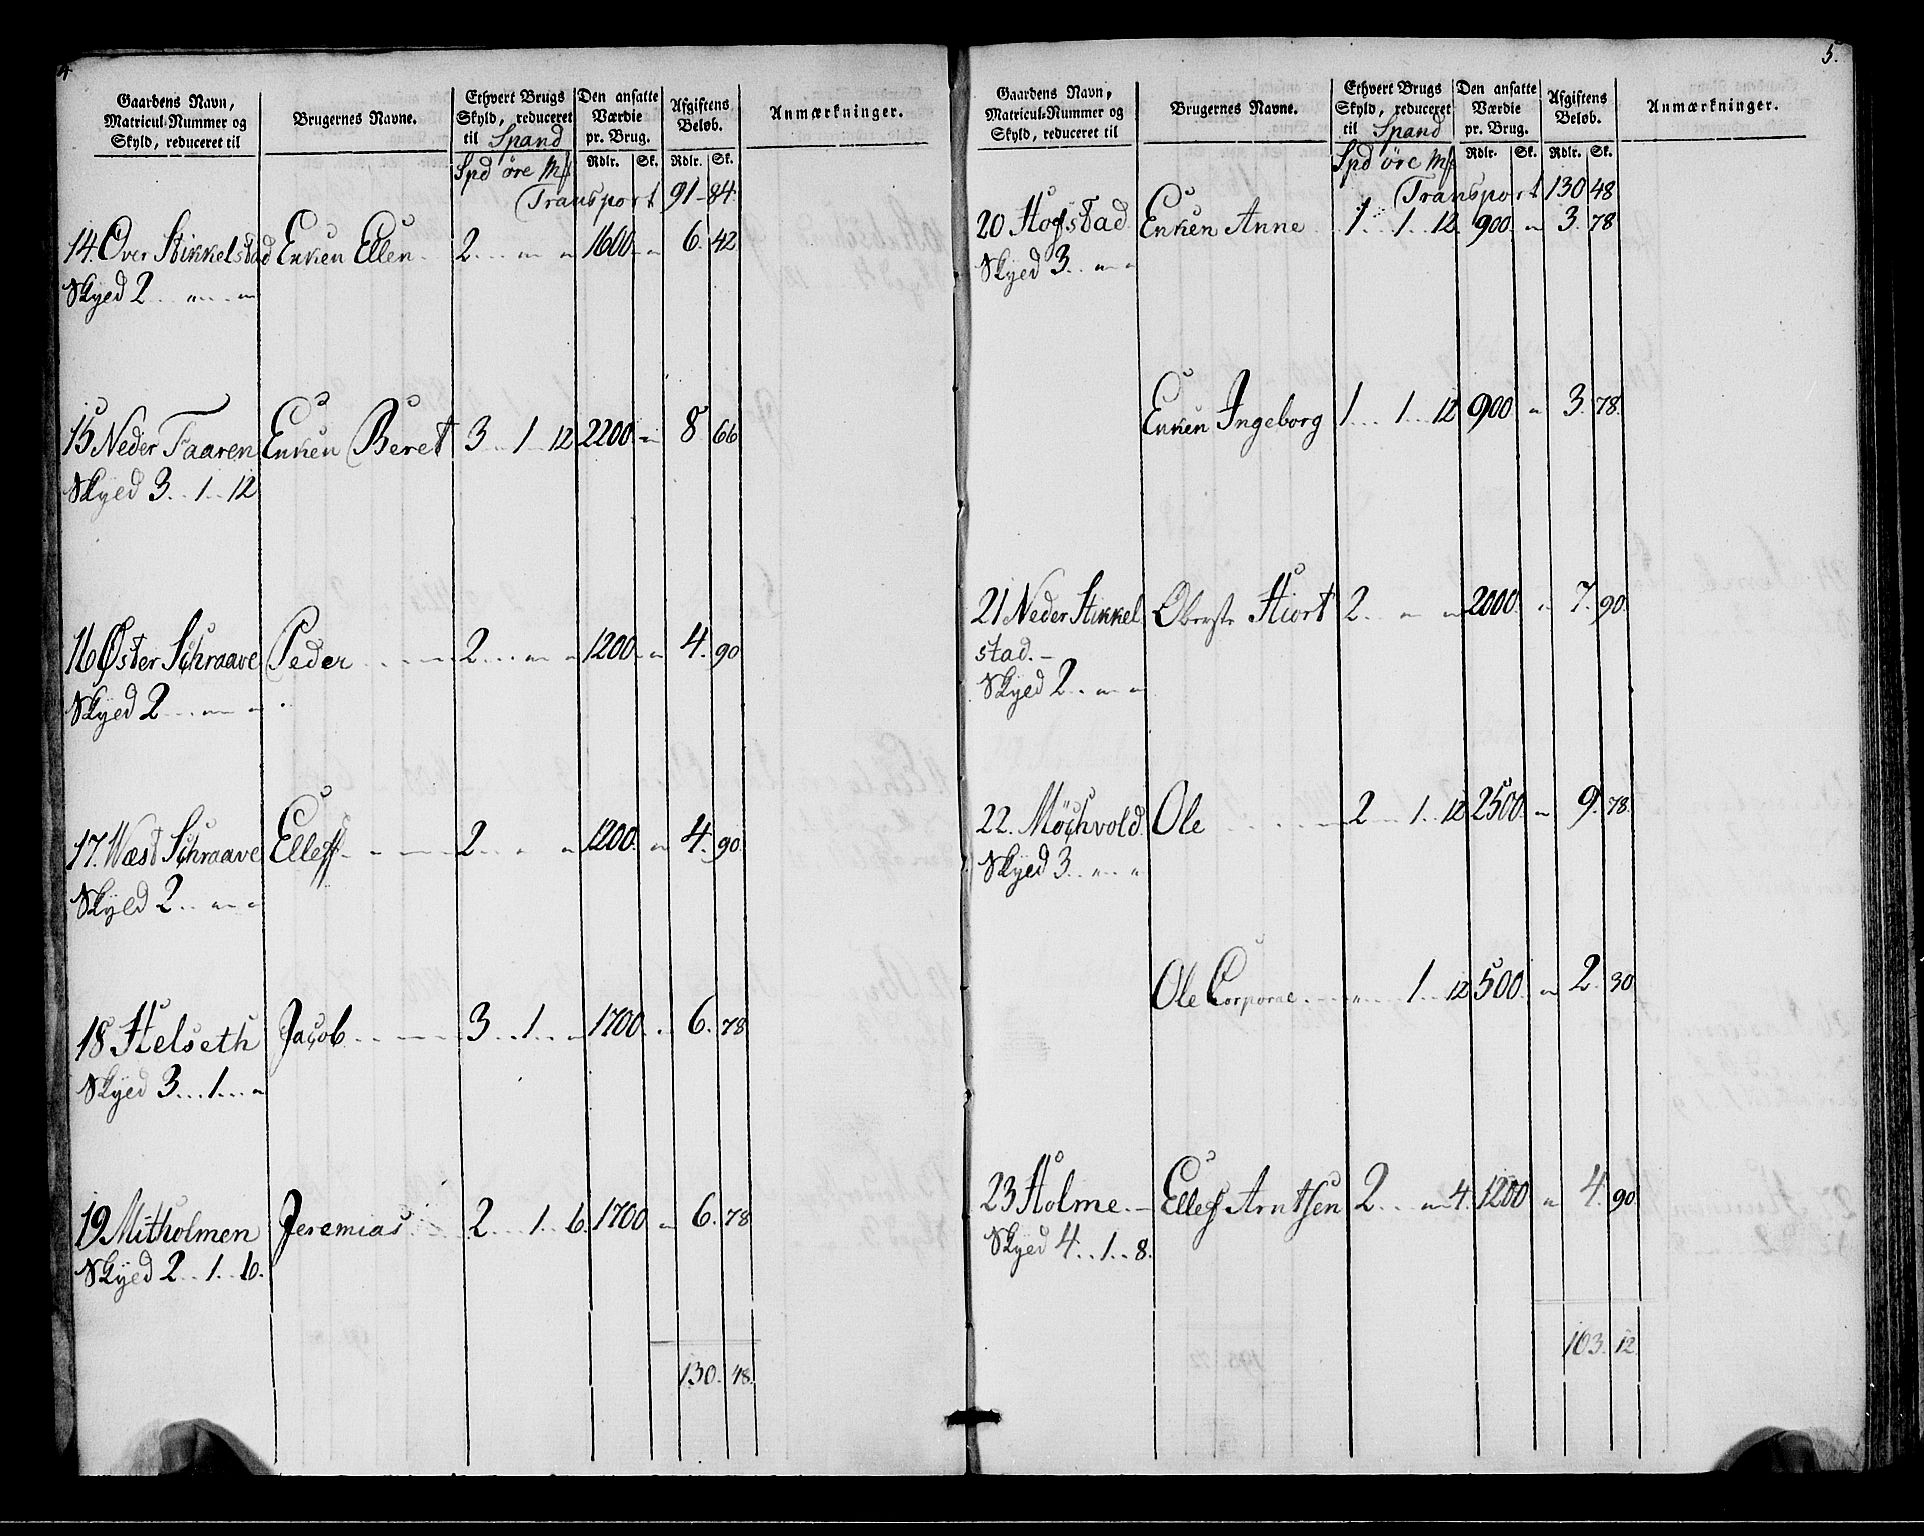 4
Gaardens Navn,
Matricul-Nummer og
Skyld, reduceret til
Brugernes Navne.
Ethvert Brugs
Skyld, reduceret
til Spand
Den ansatte
Værdie
pr. Brug.
Afgiftens
Beløb.
Anmærkninger.
Spd øre Mf Rdlr. Sk. Rdlr. Sk.
Transport 91 - 84
14. Over Stikkelstad Enken Ellen. 2... „ „ 1600. „ 6. 42
Skyed 2... „ .. „
15 Neder Faaren Enken Beret 3.. 1.. 12 2200 „ 8 66
Skyed 3.. 1.. 12
16 Øster Schraave Peder 2... „ „ 1200. „ 4. 90
Skyed 2... „ „
17. Wæst Schraave Elleff 2... „ „ 1200. „ 4. 90
Skyed 2... „ „
18 Helseth Jacob 3.. 1... „ 1700. „ 6. 78
Skyed 3... 1... „
19 Mitholmen Jeremias 2... 1.. 6. 1700 „ 6. 78
Skyed 2.. 1.. 6.
130. 48.
5.
Gaardens Navn,
Matricul-Nummer og
Skyld, reduceret til
Brugernes Navne.
Ethvert Brugs
Skyld, reduceret
til Spand
Den ansatte
Værdie
pr. Brug.
Afgiftens
Beløb.
Anmærkninger.
Spd øre Mf Rdlr. Sk. Rdlr. Sk.
Transport 130 48
20 Hofstad Enken Anne 1... 1.. 12. 900 „ 3. 78
Skyed 3.. „ „
Enken Ingeborg 1... 1.. 12 900 „ 3. 78.
21 Neder Stikkel Oberste Hiort 2.. „ „ 2000. „ 7. 90.
stad. -
Skyed 2.. „ „
22. Möchvold Ole 2... 1.. 12 2500. „ 9. 78.
Skyed 3.. „ „
Ole Corporae „ 1.. 12 500. „ 2. 30
23 Holme. - Ellef Arntsen 2.. „ 4. 1200 „ 4. 90
Skyed 4.. 1.. 8.
103. 12.